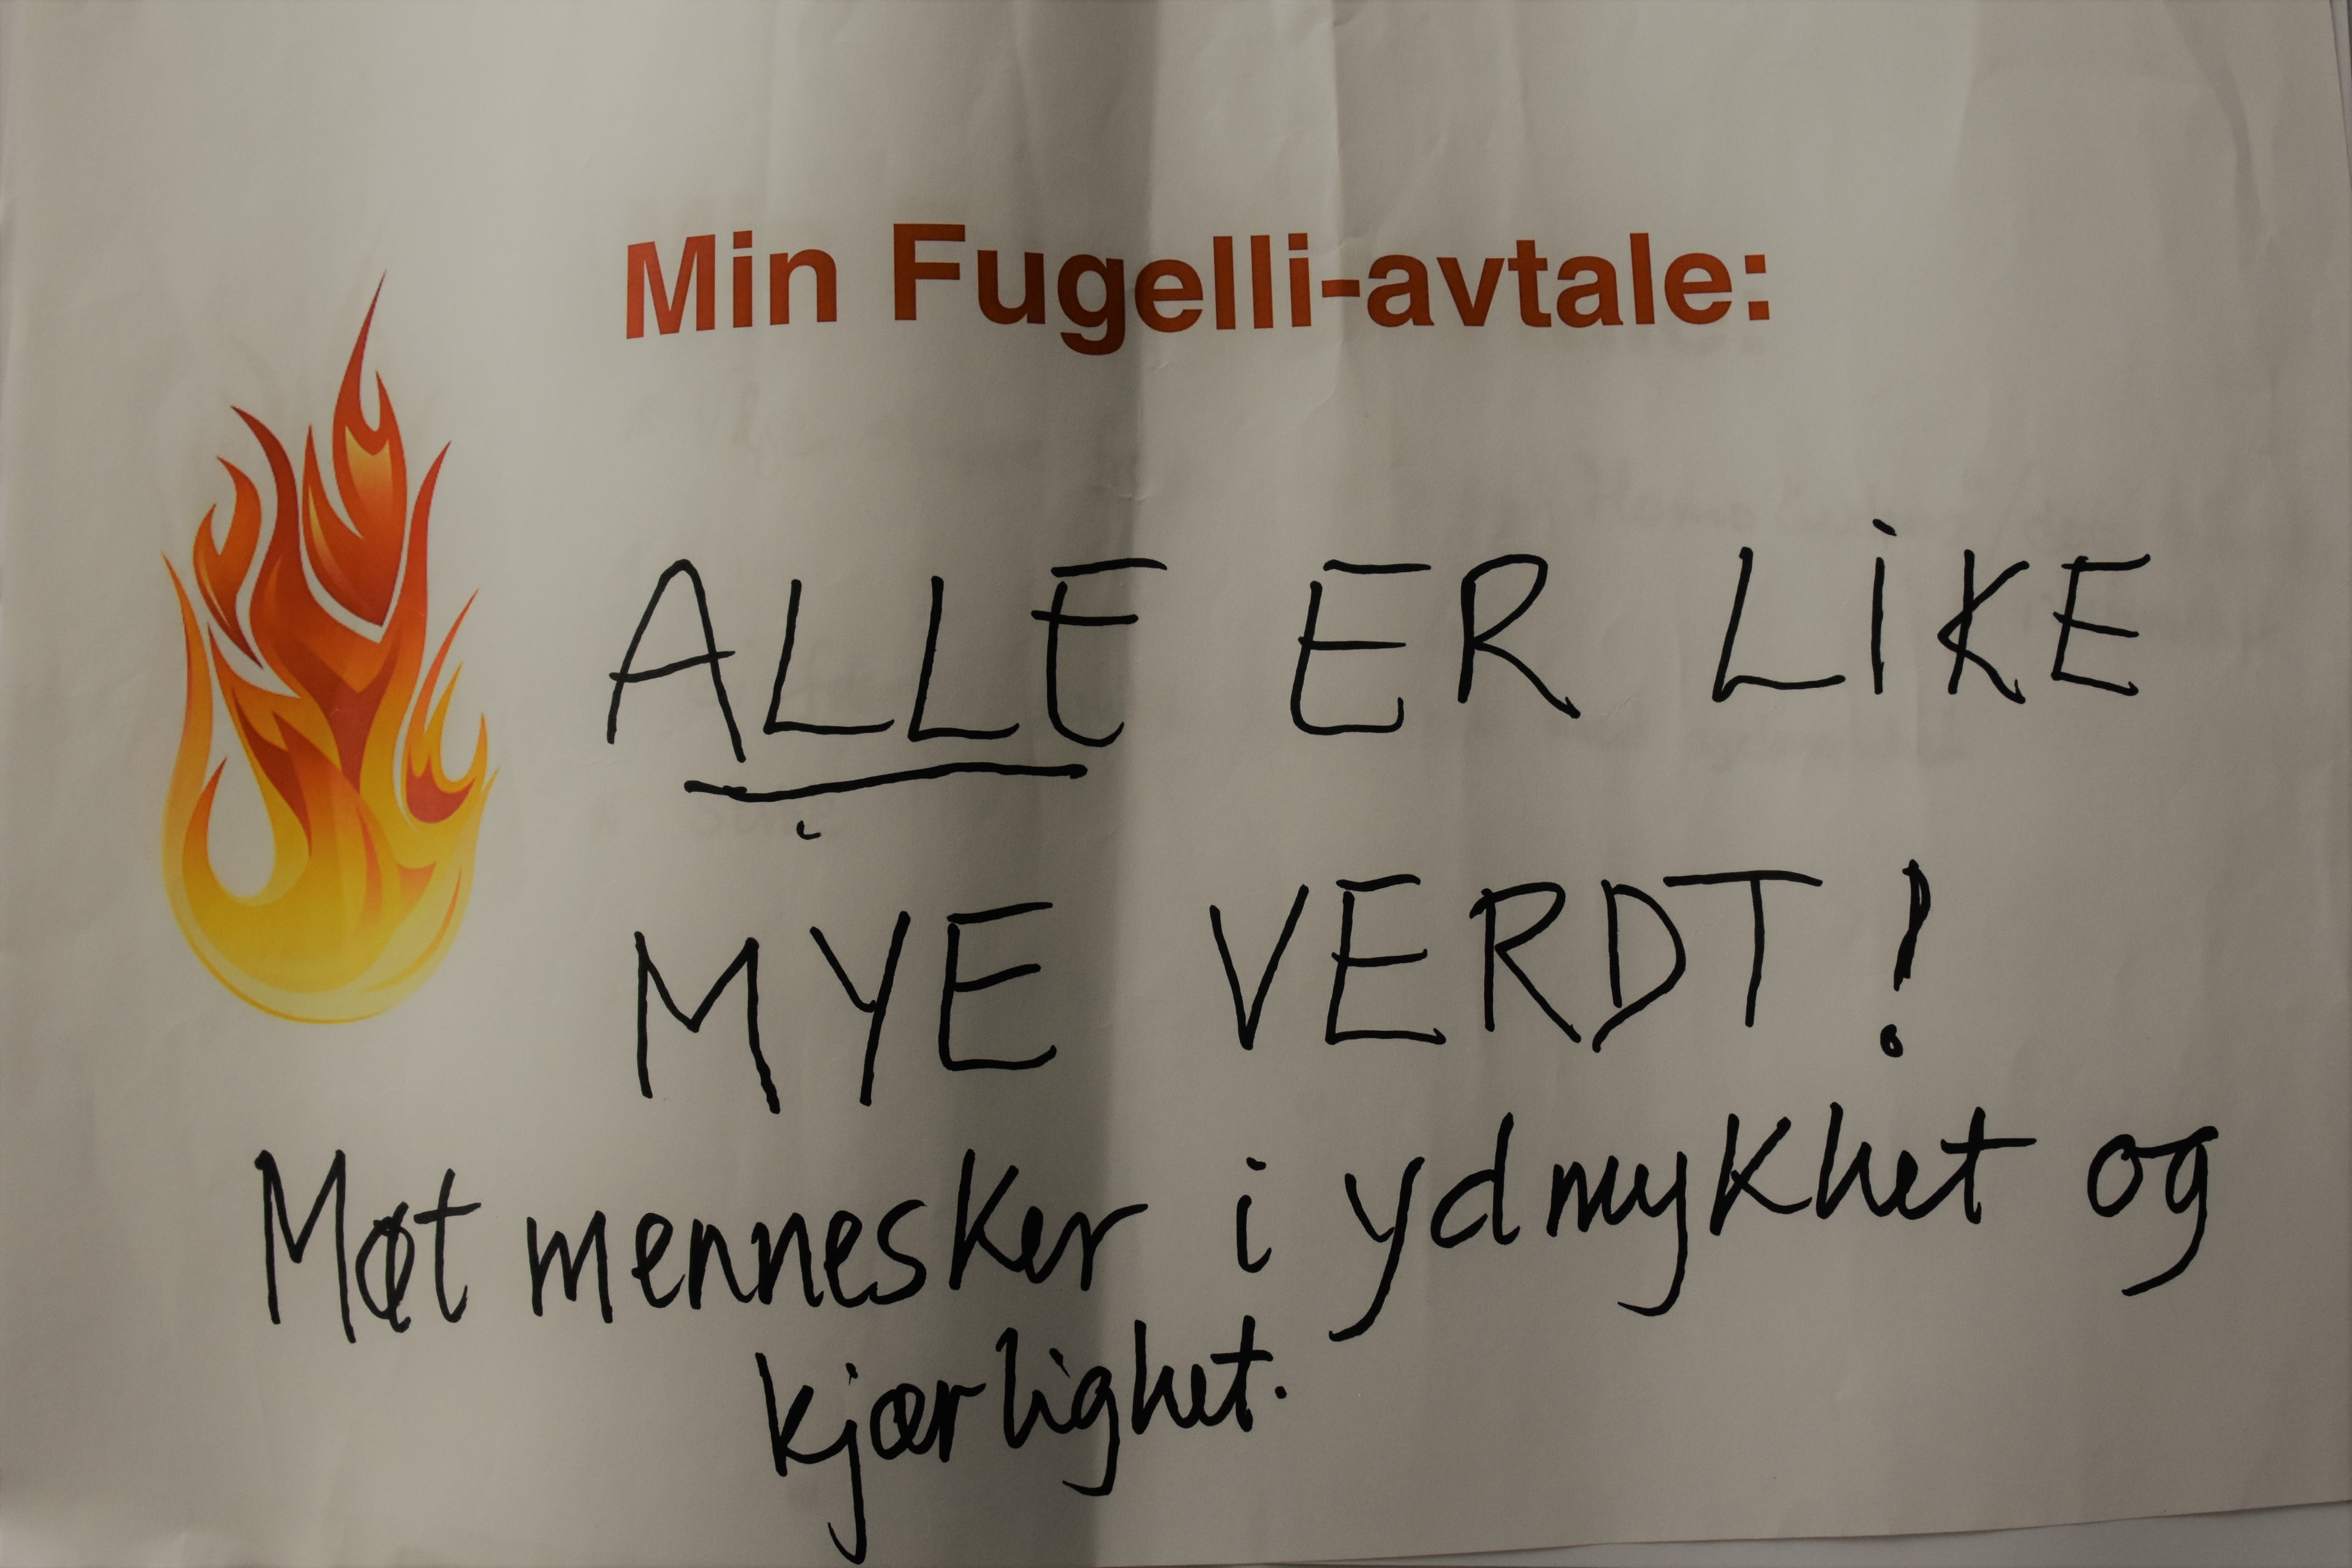 Min Fugelli-avtale:
ALLE ER LIKE
MYE VERDT!
Møt mennesker i ydmykhet og
kjærlighet.